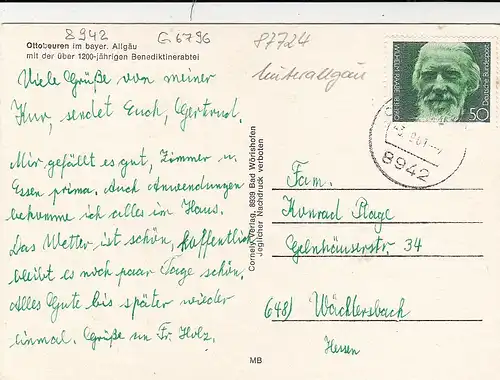 8942 G 6796
Ottobeuren im bayer. Allgäu
mit der über 1200-jährigen Benediktinerabtei
87724
Unterallgäu
Viele Grüße von meiner
Kur, sendet Euch, Gertrud.
Mir gefällt es gut, Zimmer u.
Essen prima. Auch Anwendungen
bekomme ich alles im Haus.
Das Wetter, ist schön, hoffentlich
bleibt es noch paar Tage schön.
Alles Gute bis später wieder
einmal. Grüße an Fr. Holz.
Cornely Verlag, 8939 Bad Wörishofen
Jeglicher Nachdruck verboten
MB
WILHELM RAABE 1831-1910
Deutsche Bundespost
50
8942
Fam.
Konrad
Gelnhäuserstr. 34
648) Wächtersbach
Hessen